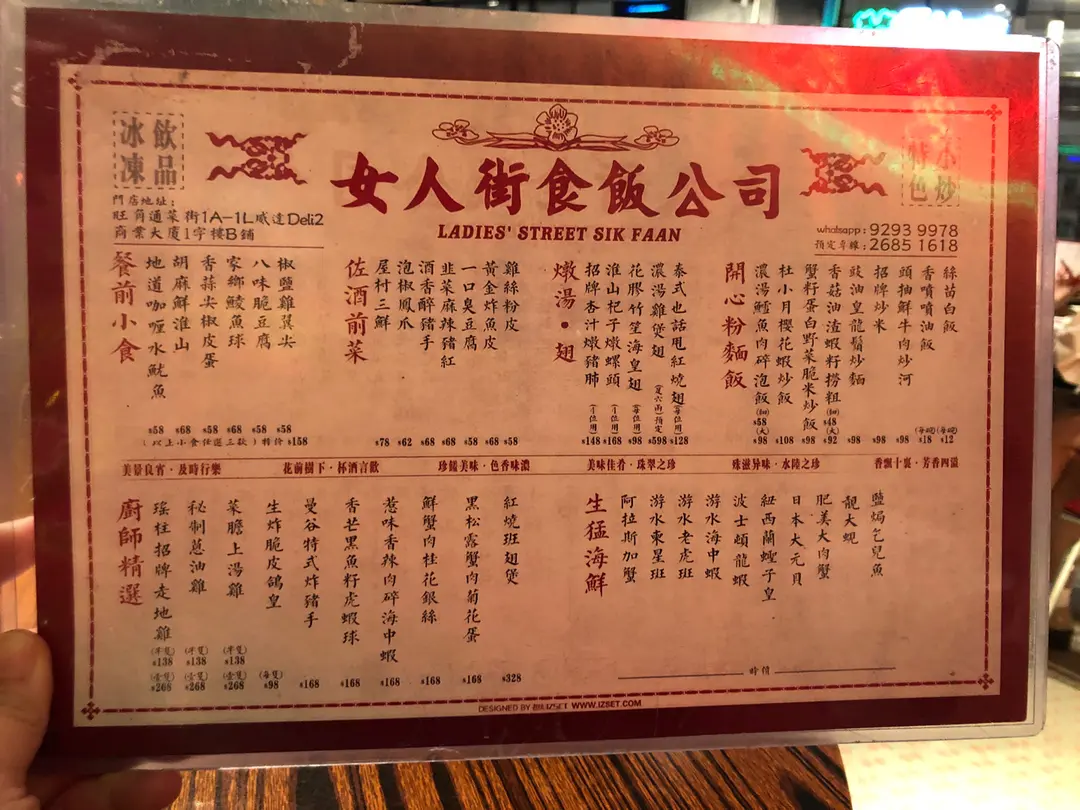 飲品
冰凍
小炒
特色
女人街食飯公司
LADIES' STREET SIK FAAN
門店地址：
旺角通菜街1A-1L威達Deli2
商業大廈1字樓B鋪
whatsapp : 9293 9978
預定專線 : 2685 1618
餐前小食
地道咖喱水魷魚 $58
胡麻鮮淮山 $68
香蒜尖椒皮蛋 $58
家鄉鯪魚球 $68
八味脆豆腐 $58
椒鹽雞翼尖 $58
(以上小食任選三款) 特價 $158
佐酒前菜
屋村三鮮 $78
泡椒鳳爪 $62
酒香醉豬手 $68
韭菜麻辣豬紅 $68
一口臭豆腐 $58
黃金炸魚皮 $68
雞絲粉皮 $58
燉湯・翅
招牌杏汁燉豬肺 (1位用) $148
淮山杞子燉螺頭 (1位用) $168
花膠竹笙海皇翅 (每位用) $98
濃湯雞煲翅 (定六兩)預定 $598
泰式也話甩紅燒翅 (每位用) $128
開心粉麵飯
濃湯鱸魚肉碎泡飯 (細) $58 (大) $98
杜小月櫻花蝦炒飯 $108
蟹籽蛋白野菜脆米炒飯 $98
香菇油渣蝦籽撈粗 (細) $48 (大) $92
豉油皇龍鬚炒麵 $98
招牌炒米 $98
頭抽鮮牛肉炒河 $98
香噴噴油飯 (每碗) $18
絲苗白飯 (每碗) $12
美景良宵・及時行樂
花前樹下・杯酒言歡
珍餚美味・色香味濃
美味佳肴・珠翠之珍
殊滋异味・水陸之珍
香飄十裏・芳香四溢
廚師精選
瑤柱招牌走地雞 (半隻) $138 (壹隻) $268
秘制蔥油雞 (半隻) $138 (壹隻) $268
菜膽上湯雞 (半隻) $138 (壹隻) $268
生炸脆皮鴿皇 (每隻) $98
曼谷特式炸豬手 $168
香芒黑魚籽虎蝦球 $168
惹味香辣肉碎海中蝦 $168
鮮蟹肉桂花銀絲 $168
黑松露蟹肉菊花蛋 $168
紅燒班翅煲 $328
生猛海鮮
阿拉斯加蟹
游水東星班
游水老虎班
游水海中蝦
波士頓龍蝦
紐西蘭蟶子皇
日本大元貝
肥美大肉蟹
靚大蜆
鹽焗乞兒魚
時價
DESIGNED BY IZSET WWW.IZSET.COM